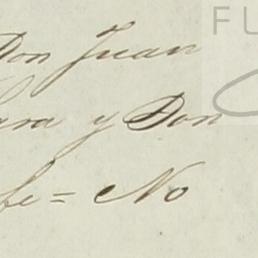 Don Juan
ara y Don
fe = No
FU